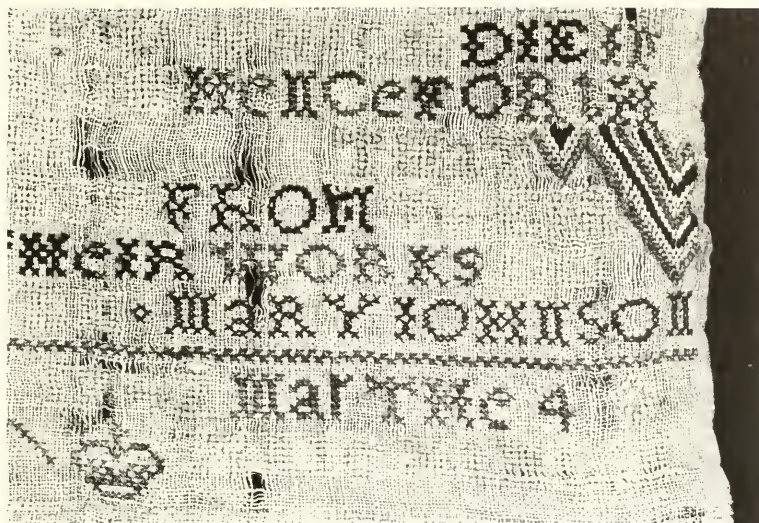 DIE
HeNCeFORTH
FROM
HeIR WORKS
MaRY IOHNSON
MarTHe 4